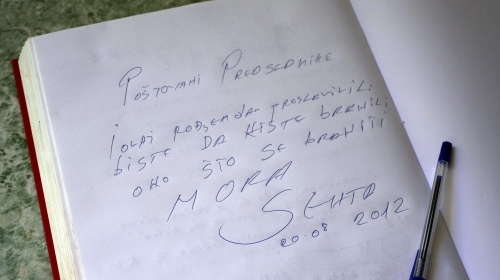 Poštovani Predsedniče
I ovaj rođendan proslavili
biste da niste branili
ono što se braniti
MORA
20.08 2012